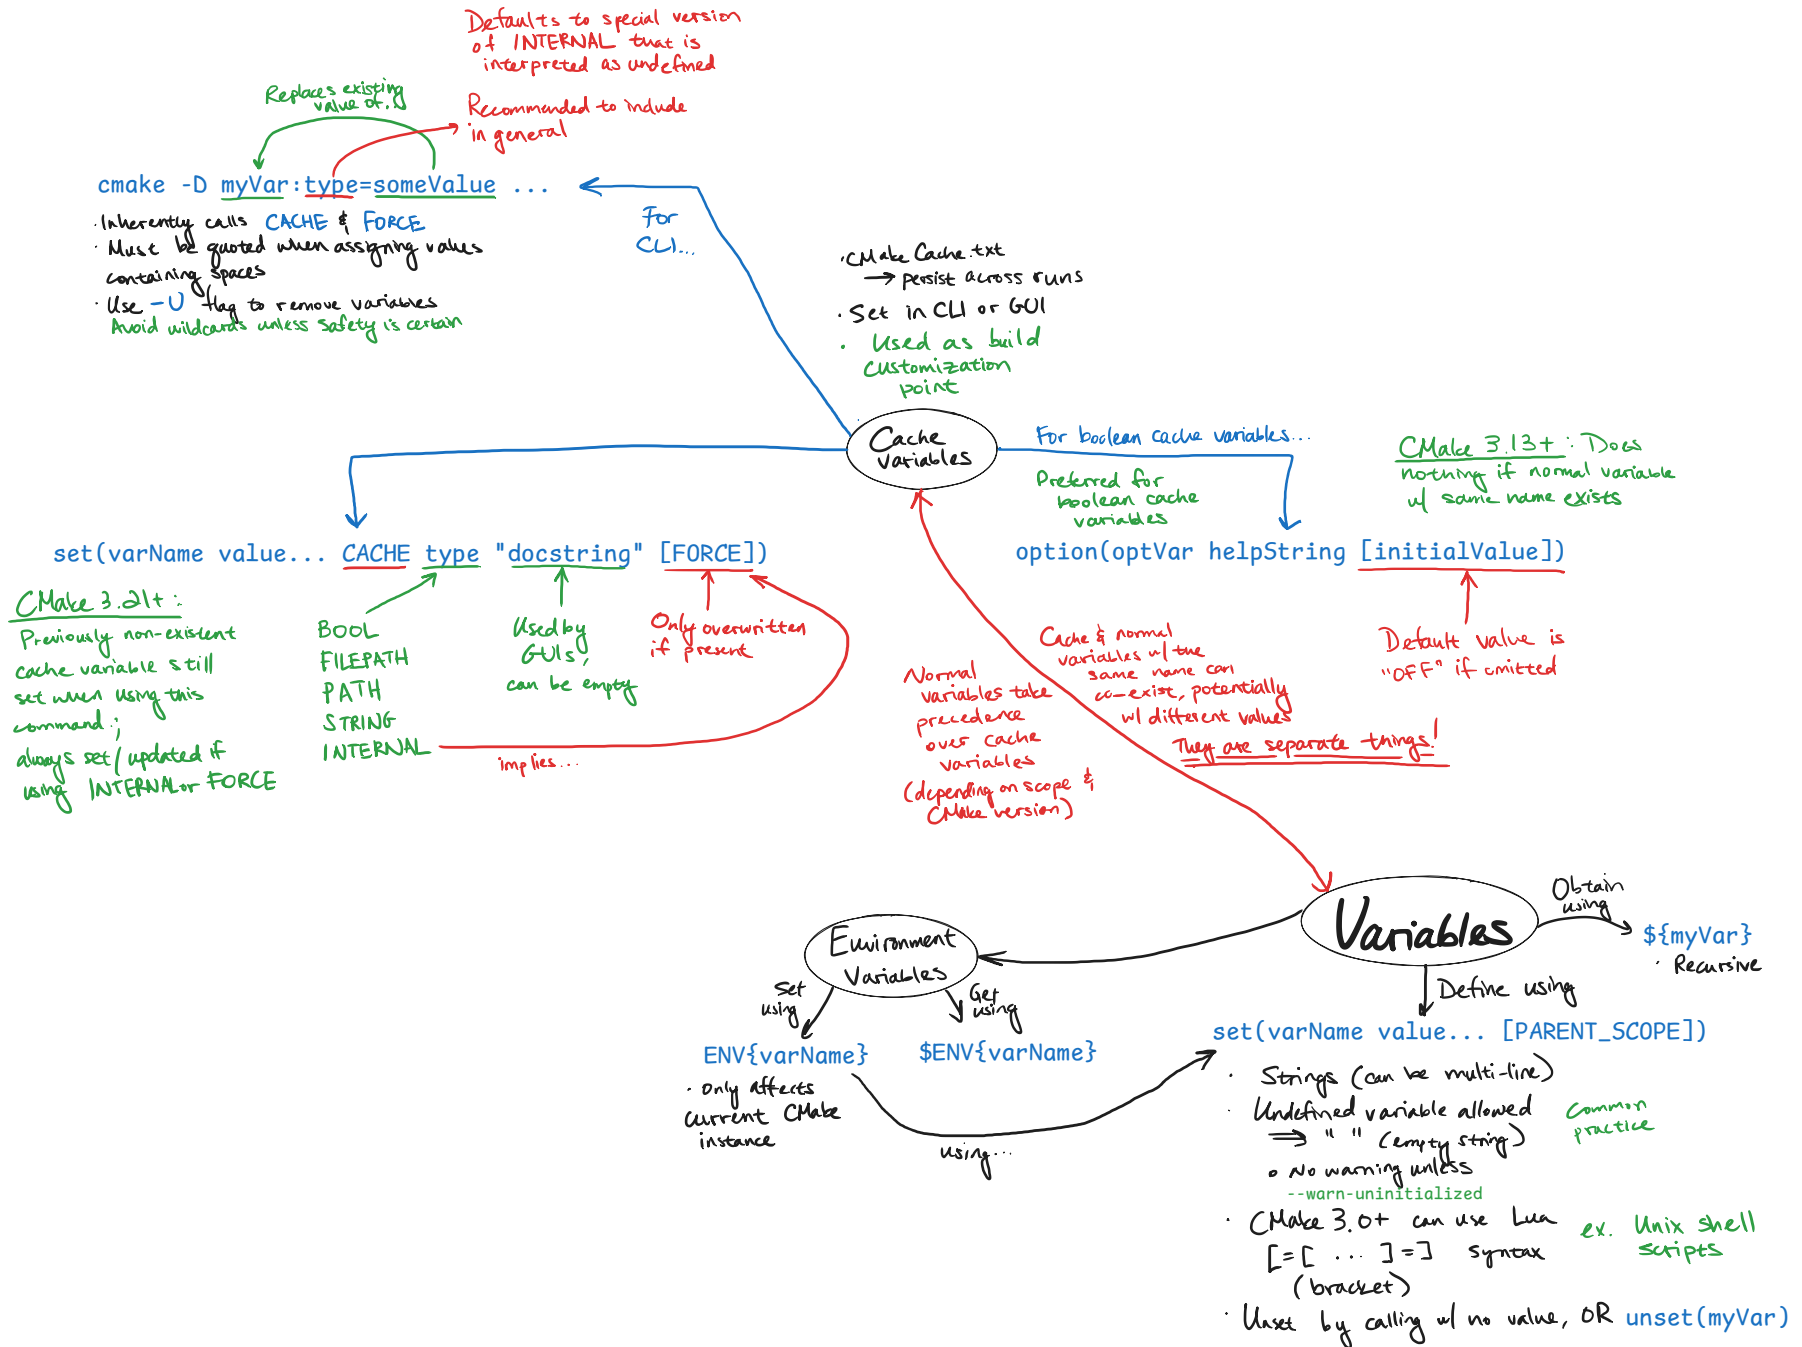 Defaults to special version
of INTERNAL that is
interpreted as undefined
Replaces existing
value of...
Recommended to include
in general
cmake -D myVar:type=someValue ...
· Inherently calls CACHE & FORCE
· Must be quoted when assigning values
containing spaces
· Use -U flag to remove variables
Avoid wildcards unless safety is certain
For
CLI...
· CMake Cache.txt
→ persist across runs
· Set in CLI or GUI
· Used as build
customization
point
Cache
variables
For boolean cache variables...
Preferred for
boolean cache
variables
CMake 3.13+ : Does
nothing if normal variable
w/ same name exists
set(varName value... CACHE type "docstring" [FORCE])
option(optVar helpString [initialValue])
CMake 3.21+ :
Previously non-existent
cache variable still
set when using this
command ;
always set/updated if
using INTERNAL or FORCE
BOOL
FILEPATH
PATH
STRING
INTERNAL
implies...
Used by
GUIs,
can be empty
Only overwritten
if present
Default value is
"OFF" if omitted
Cache & normal
variables w/ the
same name can
co-exist, potentially
w/ different values
They are separate things!
Normal
variables take
precedence
over cache
variables
(depending on scope &
CMake version)
Variables
Obtain
using
${myVar}
· Recursive
Environment
Variables
Set
using
Get
using
ENV{varName}
$ENV{varName}
· Only affects
current CMake
instance
using...
Define using
set(varName value... [PARENT_SCOPE])
· Strings (can be multi-line)
· Undefined variable allowed
⇒ " " (empty string)
Common
practice
∘ No warning unless
--warn-uninitialized
· CMake 3.0+ can use Lua
[=[ ... ]=] syntax
(bracket)
ex. Unix shell
scripts
· Unset by calling w/ no value, OR unset(myVar)